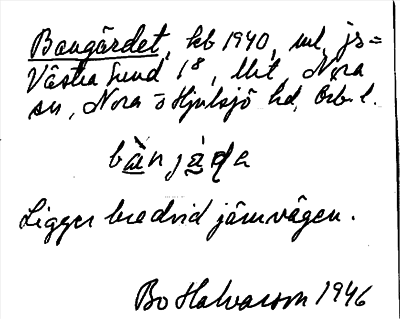 Bangärdet, kb 1940, ml, js=
Västra Sund 1⁸, Mit, Nora
sn, Nora o Hjulsjö hd, Örb. l.
bànjà̤ḍa
Ligger bredvid järnvägen.
Bo Halvarson 1946